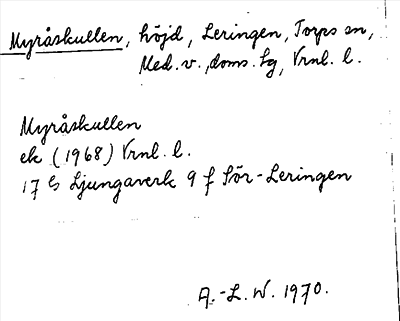 Myråskullen, höjd, Leringen, Torps sn,
Med. v., doms. lg, Vrnl. l.
Myråskullen
ek (1968) Vrnl. l.
17 G Ljungaverk 9 f Sör-Leringen
A.-L. W. 1970.